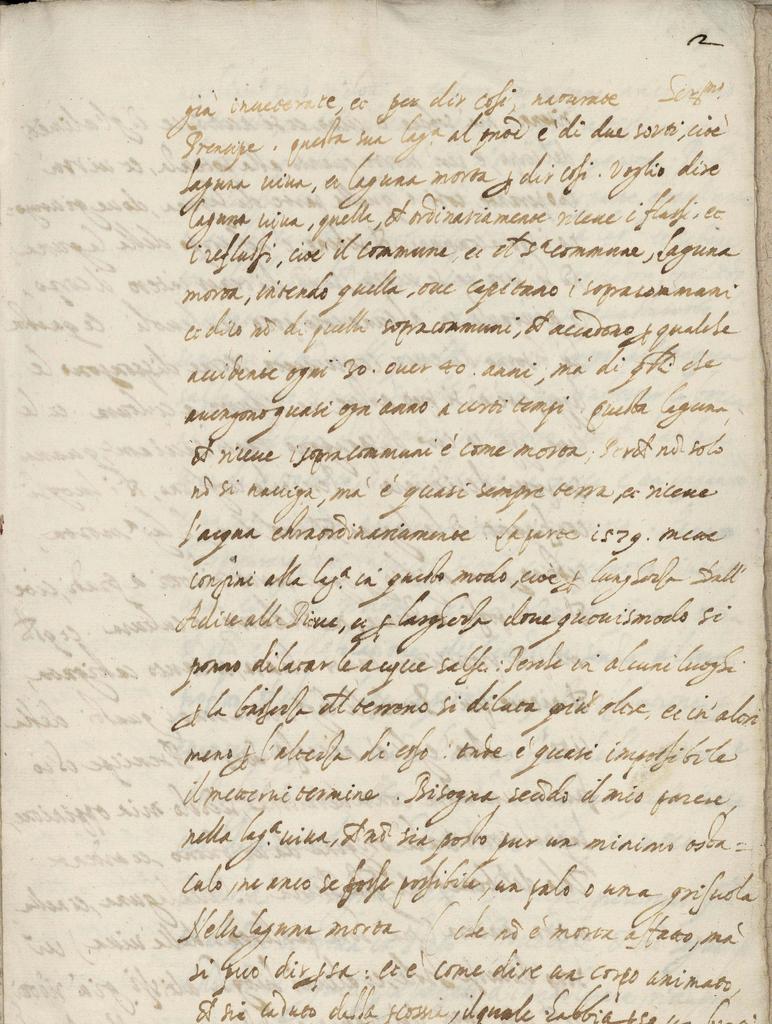 2
già inueterate, et per dir cosi, naturate Ser.mo
Prencipe. questa sua lag.a al pñte è di due sorti, cioè
laguna viua, et laguna morta p dir cosi. Voglio dire
laguna viua, quella, ch ordinariamente riceue i flussi, et
i reflussi, cioè il commune, et il s.a commune, Laguna
morta, intendo quella, oue capitano i sopracommuni
et dico nõ di quelli sopracommuni, ch accadono p qualche
accidente ogni 30. ouer 40. anni, mà di che
auengono quasi ogn'anno a certi tempi. Questa laguna,
ch riceue i sopracommuni è come morta, Perch nõ solo
nõ si nauiga, mà è quasi sempre terra, et riceue
l'acqua extraordinariamente. La parte 1579. mette
confini alla lag.a in questo modo, cioè p lunghezza dall'
Adice alla Piaue, et p larghezza doue quouismodo si
ponno dilatar le acque salse: Perche in alcuni luoghi
p la bassezza del terreno si dilata più oltre, et in altri
meno p l'altezza di esso: onde è quasi impossibile
il metterui termine. Bisogna secõdo il mio parere,
nella lag.a viua, ch nõ sia posto pur un minimo osta=
culo, ne anco se fosse possibile, un palo o una grisuola
Nella laguna morta (che nõ è morta affatto, mà
si può dir psa: et è come dire un corpo animato,
ch sia caduto dalla , il quale habbia pso